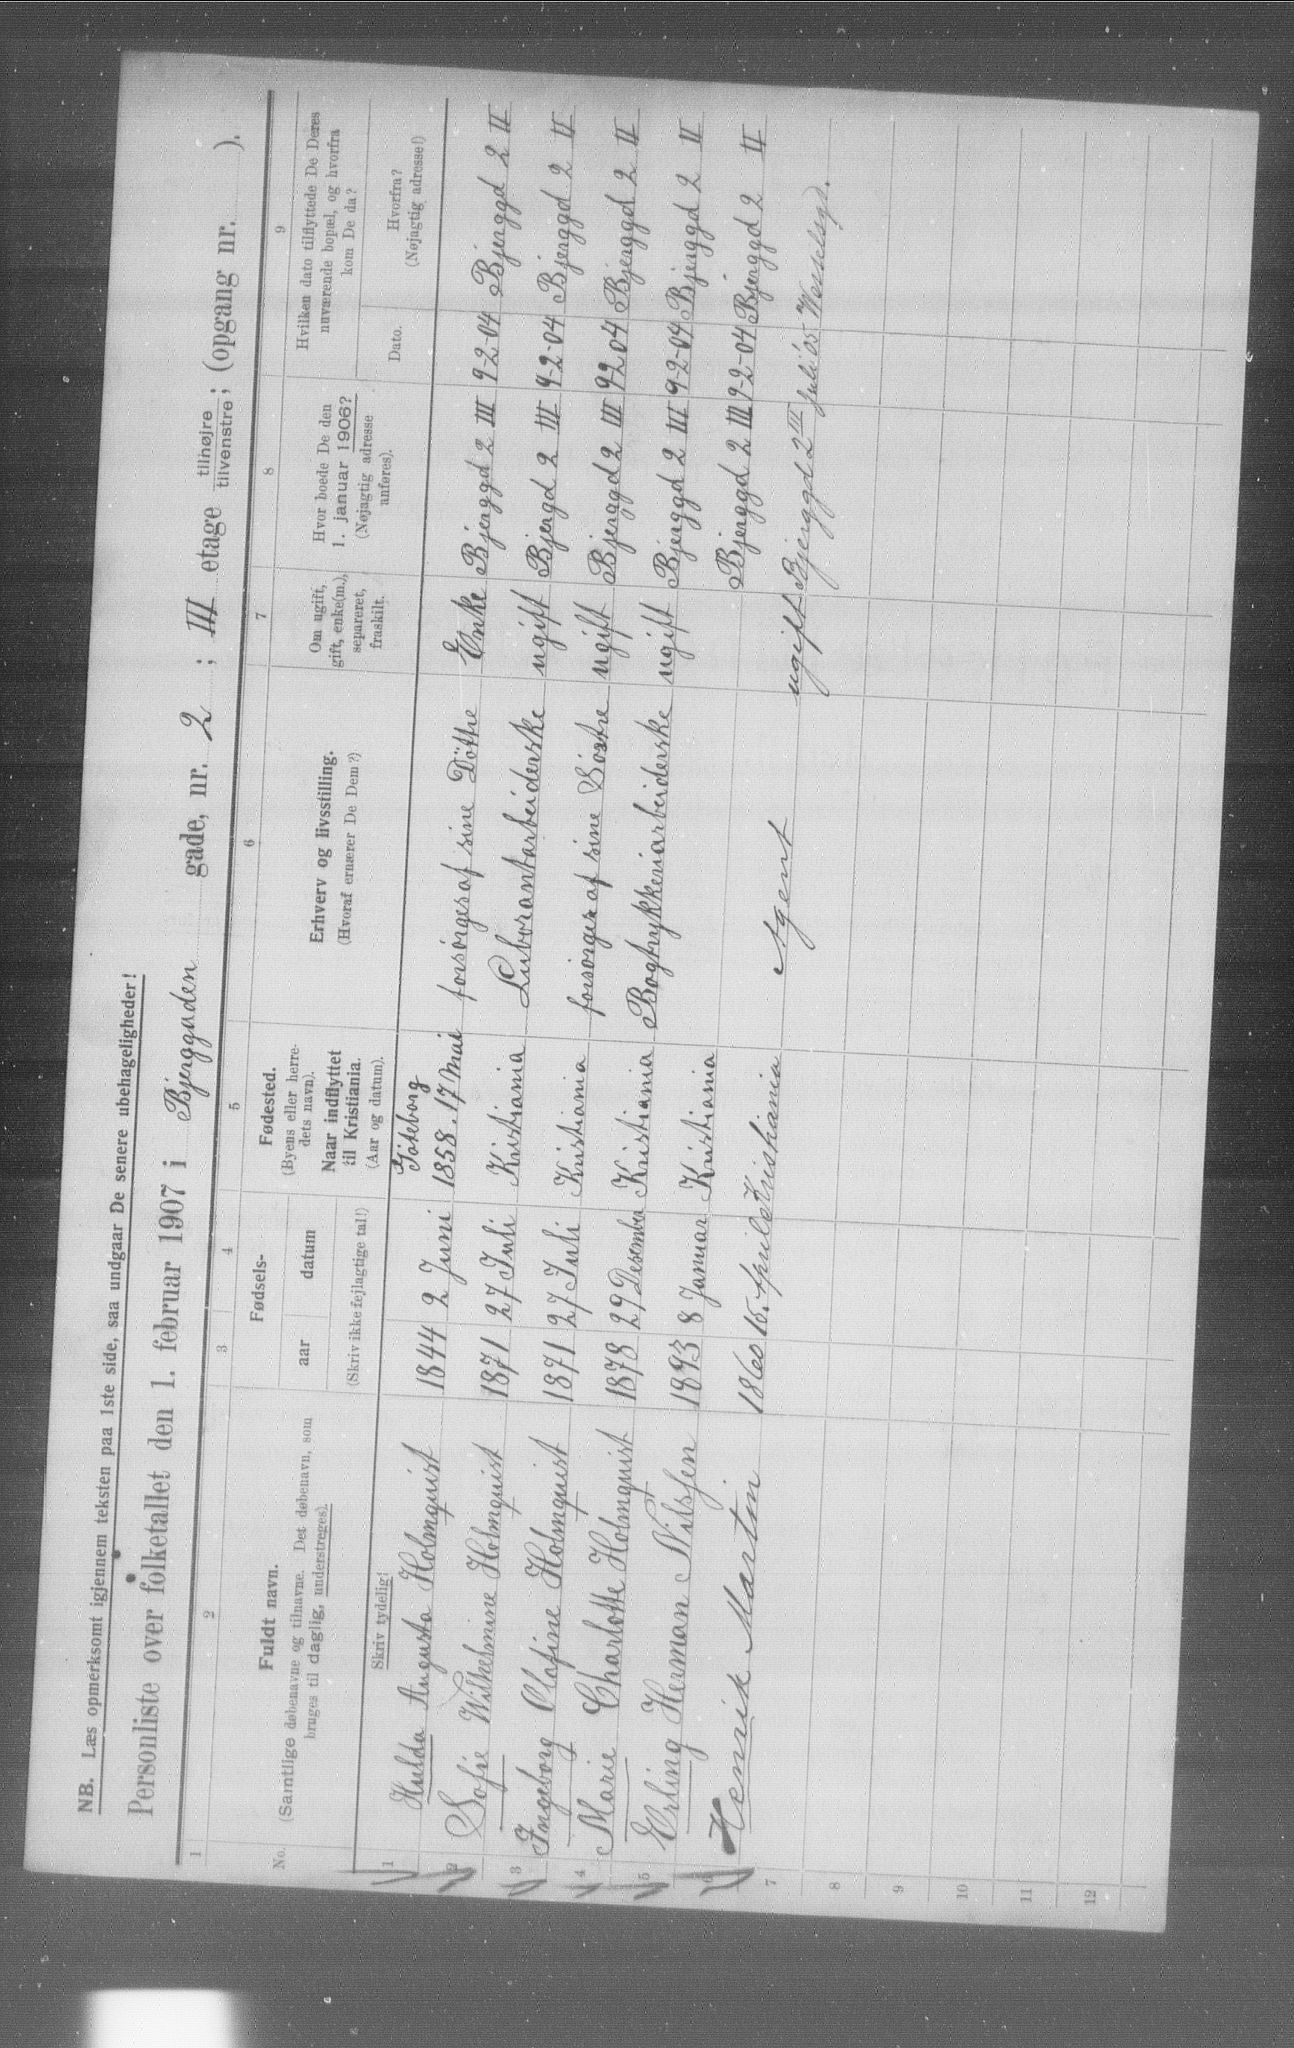 NB. Læs opmerksomt igjennem teksten paa 1ste side, saa undgaar De senere ubehageligheder!
Personliste over folketallet den 1. februar 1907 i Bjerggaden gade, nr. 2 ; III etage tilhøjre tilvenstre; (opgang nr. ).
1 2 3 4 5 6 7 8 9
No.
Fuldt navn.
(Samtlige døbenavne og tilnavne. Det døbenavn, som
bruges til daglig, understreges).
Fødsels-
aar datum
(Skriv ikke fejlagtige tal!)
Fødested.
(Byens eller herre-
dets navn).
Naar indflyttet
til Kristiania.
(Aar og datum).
Erhverv og livsstilling.
(Hvoraf ernærer De Dem?)
Om ugift,
gift, enke(m.),
separeret,
fraskilt.
Hvor boede De den
1. januar 1906?
(Nøjagtig adresse
anføres).
Hvilken dato tilflyttede De Deres
nuværende bopæl, og hvorfra
kom De da?
Dato.
Hvorfra?
(Nøjagtig adresse!)
Skriv tydelig!
Göteborg
1 Hulda Augusta Holmquist 1844 2 Juni 1858. 17 Mai forsörges af sine Döttre Enke Bjerggd 2 III 9-2-04 Bjerggd 2 II
2 Sofie Wilhelmine Holmquist 1871 27 Juli Kristiania Luborantarbeiderske ugift Bjergd 2 III 9-2-04 Bjerggd 2 II
3 Ingeborg Olafine Holmquist 1871 27 Juli Kristiania forsörges af sine Söstre ugift Bjerggd 2 III 9 2 04 Bjerggd 2 II
4 Marie Charlotte Holmquist 1878 29 Desember Kristiania Bogtrykkeriarbeiderske ugift Bjerggd 2 III 9-2-04 Bjerggd 2 II
5 Erling Herman Nilssen 1893 8 Januar Kristiania Bjerggd 2 III 9-2-04 Bjerggd 2 II
6 Henrik Martin 1860 15. April Kristiania Agent ugift Bjerggd 2 III Juli 05 Wesselsgd.
7
8
9
10
11
12